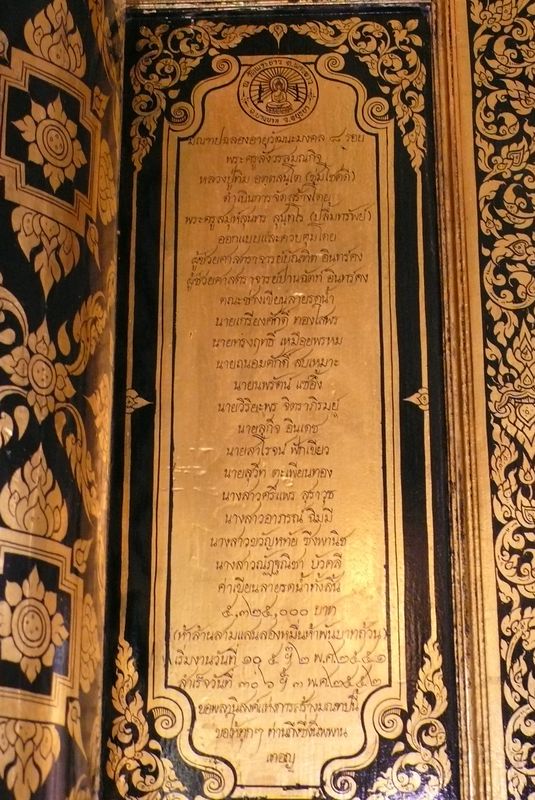 มณฑปฉลองอายุวัฒนะมงคล ๘ รอบ
พระครูสังวรสมณกิจ
หลวงปู่ทิม อตฺตสนฺโต (ชุ่มโชคดี)
ดำเนินการจัดสร้างโดย
พระครูสมุห์สุนทร (ปลื้มทรัพย์)
ออกแบบและควบคุมโดย
ผู้ช่วยศาสตราจารย์บัณฑิต อินทร์คง
ผู้ช่วยศาสตราจารย์ปานฉัตท์ อินทร์คง
คณะช่างเขียนลายรดน้ำ
นายเกรียงศักดิ์ ทองโสพร
นายทรงฤทธิ์ เหมือยพรหม
นายถนอมศักดิ์ สบเหมาะ
นายนพรัตน์ แซ่อึ้ง
นายวิริยะพร จิตราภิรมย์
นายสุกิจ อินเดช
นายสาโรจน์ ฟักเขียว
นายสุวิท ตะเพียนทอง
นางสาวศรีแพร สุราวุธ
นางสาวอาภรณ์ ฉิมมี
นางสาวขวัญหทัย ชิงพานิช
นางสาวณัฏฐณิชา บัวคลี่
ค่าเขียนลายรดน้ำทั้งสิ้น
๕,๓๒๕,๐๐๐ บาท
(ห้าล้านสามแสนสองหมื่นห้าพันบาทถ้วน)
เริ่มงานวันที่ ๑๐ ๕ ฯ ๒ พ.ศ.๒๕๕๑
สำเร็จวันที่ ๓๐ ๖ ฯ ๓ พ.ศ.๒๕๕๒
ขอผลานิสงค์แห่งการสร้างมณฑปนี้
ขอให้ทุกๆ ท่านถึงซึ่งนิพพาน
เทอญ